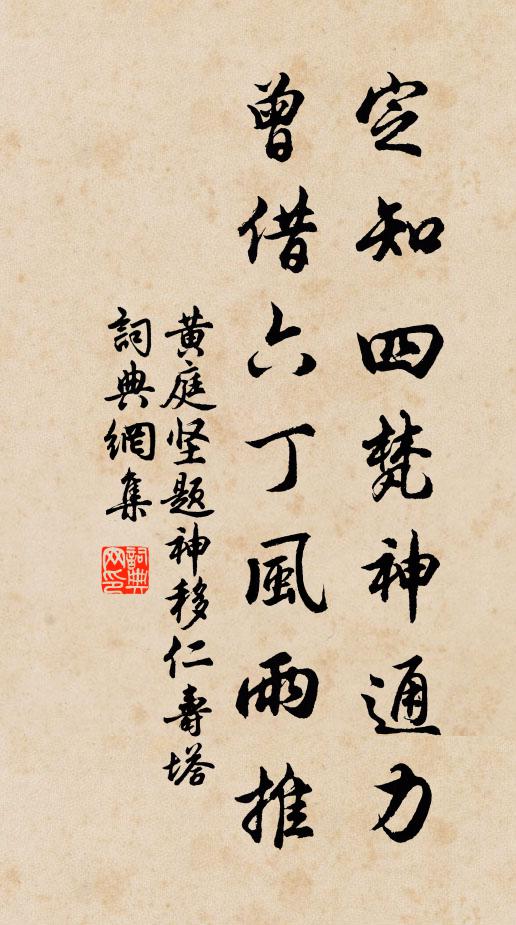 定知四梵神通力
曾借六丁風雨推
黄庭坚題神移仁壽塔
詞典網集
詞典網印